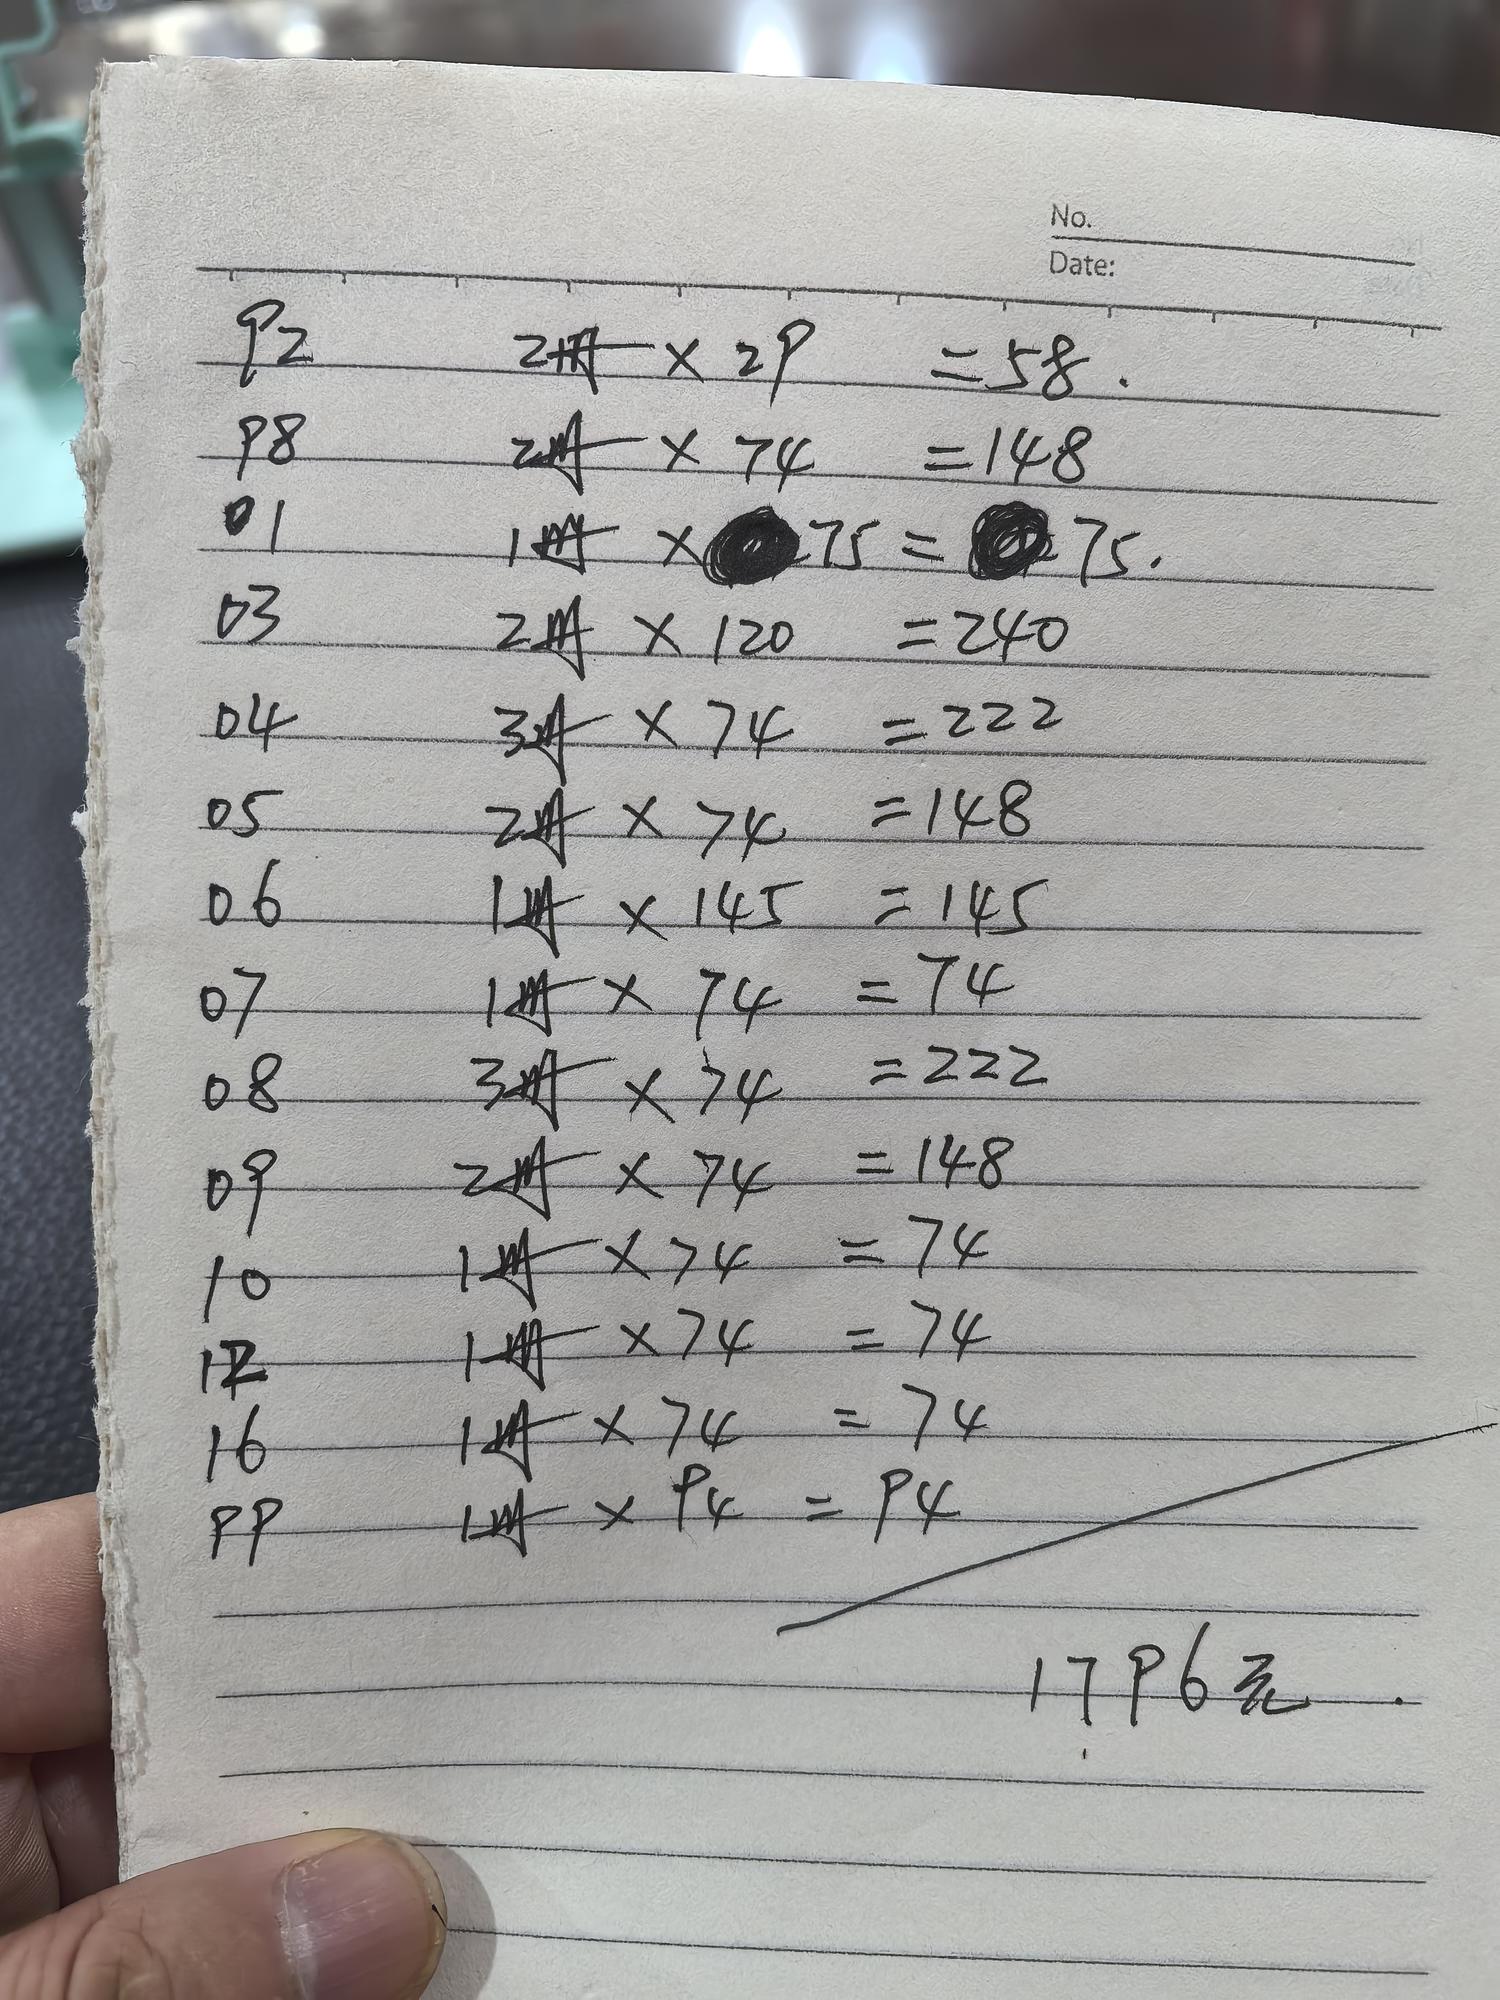 No.
Date:
92 2册 × 29 = 58.
98 2册 × 74 = 148
01 1册 × 75 = 75.
03 2册 × 120 = 240
04 3册 × 74 = 222
05 2册 × 74 = 148
06 1册 × 145 = 145
07 1册 × 74 = 74
08 3册 × 74 = 222
09 2册 × 74 = 148
10 1册 × 74 = 74
12 1册 × 74 = 74
16 1册 × 74 = 74
99 1册 × 94 = 94
1796元.